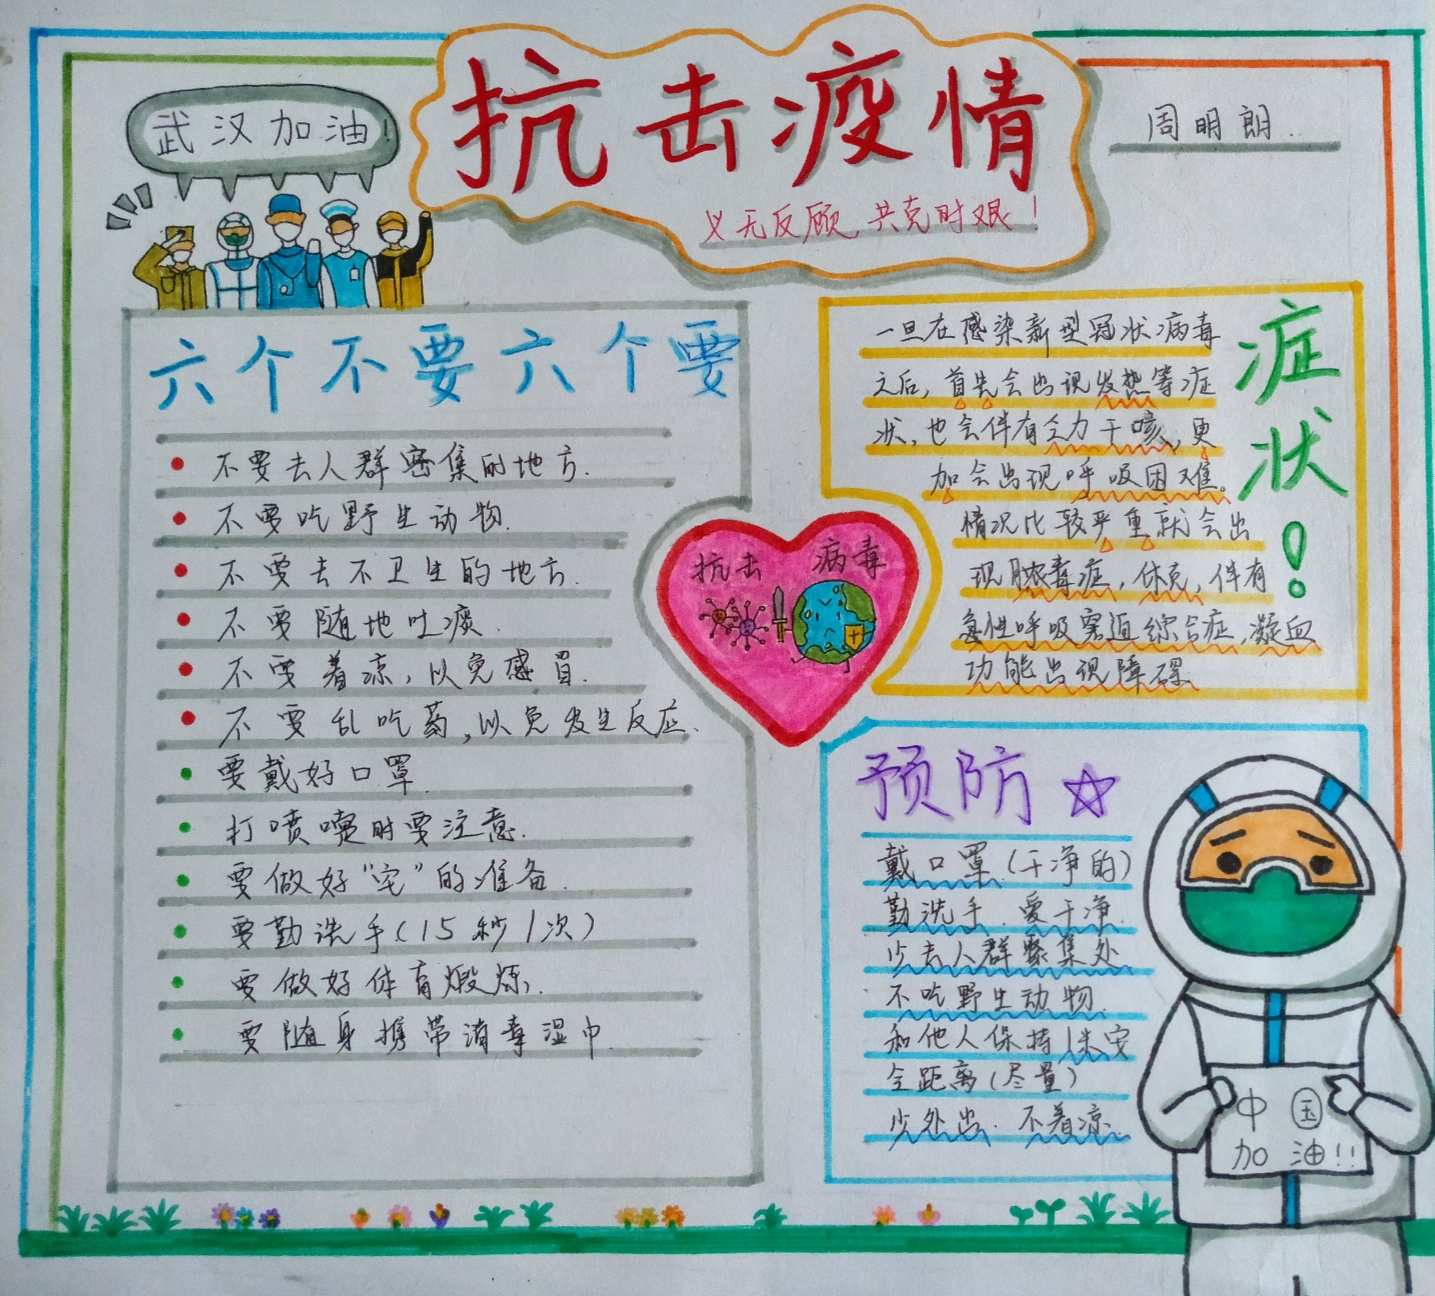 抗击疫情
义无反顾,共克时艰!
周明朗
武汉加油!
六个不要六个要
不要去人群密集的地方.
不要吃野生动物.
不要去不卫生的地方.
不要随地吐痰.
不要着凉,以免感冒.
不要乱吃药,以免发生反应.
要戴好口罩.
打喷嚏时要注意.
要做好“宅”的准备.
要勤洗手(15秒1次)
要做好体育煅炼.
要随身携带消毒湿巾.
抗击 病毒
症状!
一旦在感染新型冠状病毒
之后,首先会出现发热等症
状,也会伴有乏力干咳,更
加会出现呼吸困难。
情况比较严重就会出
现脓毒症,休克,伴有
急性呼吸窘迫综合症,凝血
功能出现障碍
预防☆
戴口罩(干净的)
勤洗手.爱干净.
少去人群聚集处
不吃野生动物.
和他人保持1米安
全距离(尽量)
少外出.不着凉.
中国
加油!!